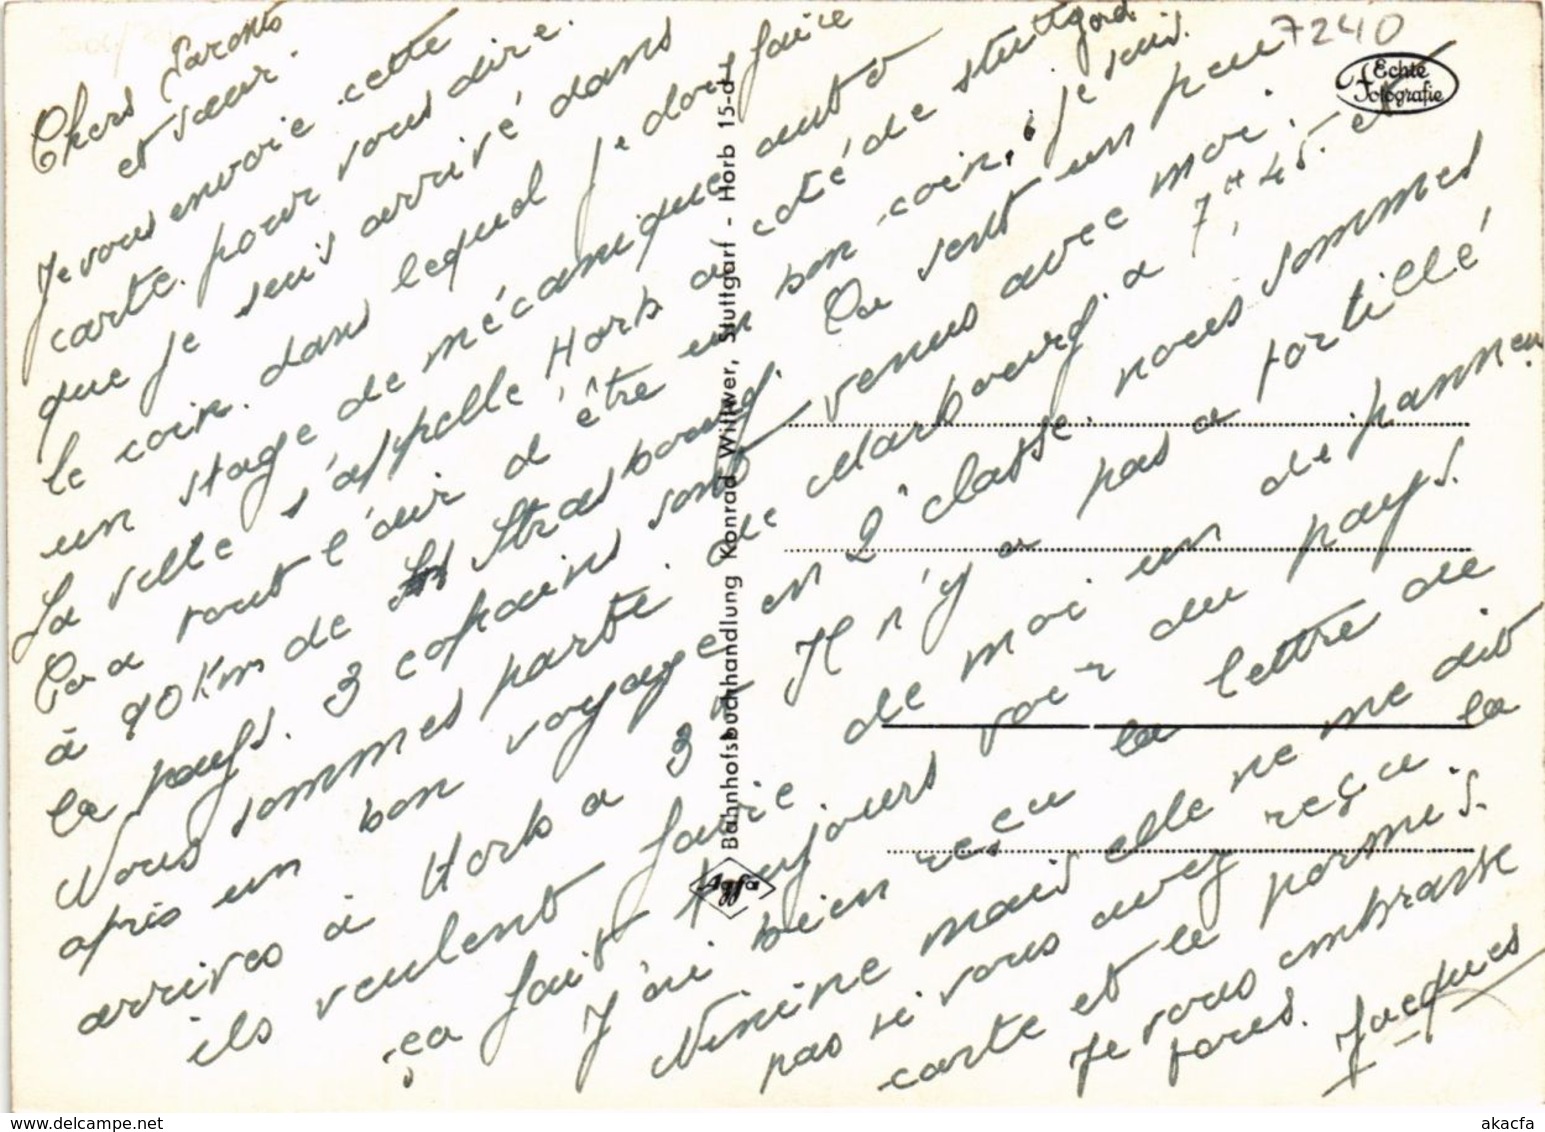 Chers Parents
et sœur.
Je vous envoie cette
carte pour vous dire.
que je suis arrivé dans
le coin. dans lequel je dois faire
un stage de mécanique auto
La ville s'appelle Horb a coté de stuttgard
Ca a tout l'air d'être un bon coin, je suis
à 90 Km de Strasbourg. Ou sont un peu
les pays. 3 copains sont venus avec moi.
Nous sommes parti de Marbourg a 7H 45. et
après un bon voyage en 2e classe nous sommes
arrivés à Horb a 3H Il n'y a pas a tortillé
ils veulent faire de moi un depanneur.
ça fait toujours voir du pays.
J'ai bien reçu la lettre de
Ninine mais elle ne me dit
pas si vous avez reçu la
carte et le permis.
Je vous embrasse
tores.
Jacques
7240
Echte
Fotografie
Bahnhofsbuchhandlung Konrad Wittwer, Stuttgart - Horb 15-d
Agfa
www.delcampe.net
akacfa